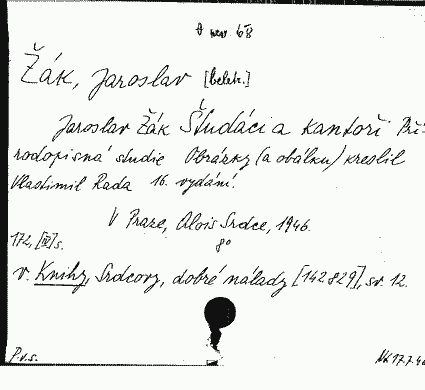 rev. 68
Žák, Jaroslav [beletr.]
Jaroslav Žák Študáci a kantoři Pří-
rodopisná studie Obrázky (a obálku) kreslil
Vlastimil Rada 16. vydání.
V Praze, Alois Srdce, 1946.
172, [III] s. 8°
v. Knihy, Srdcovy, dobré nálady [142829], sv. 12.
P.v.s.